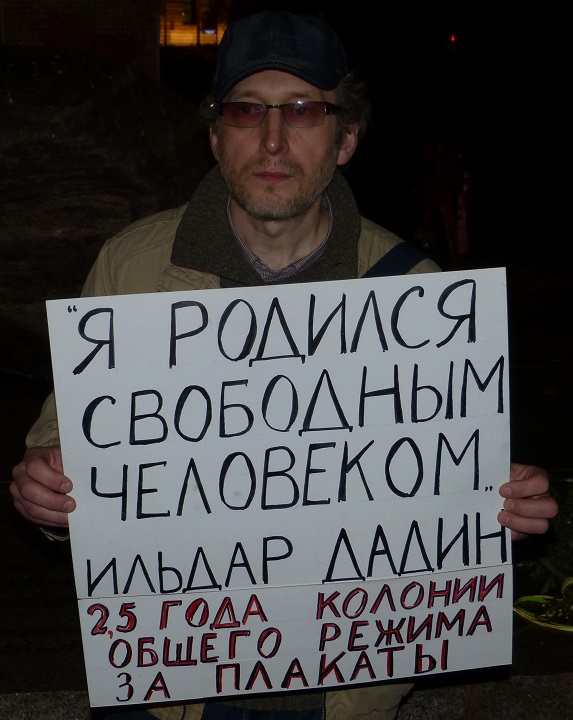 "Я РОДИЛСЯ
СВОБОДНЫМ
ЧЕЛОВЕКОМ"
ИЛЬДАР ДАДИН
2,5 ГОДА КОЛОНИИ
ОБЩЕГО РЕЖИМА
ЗА ПЛАКАТЫ